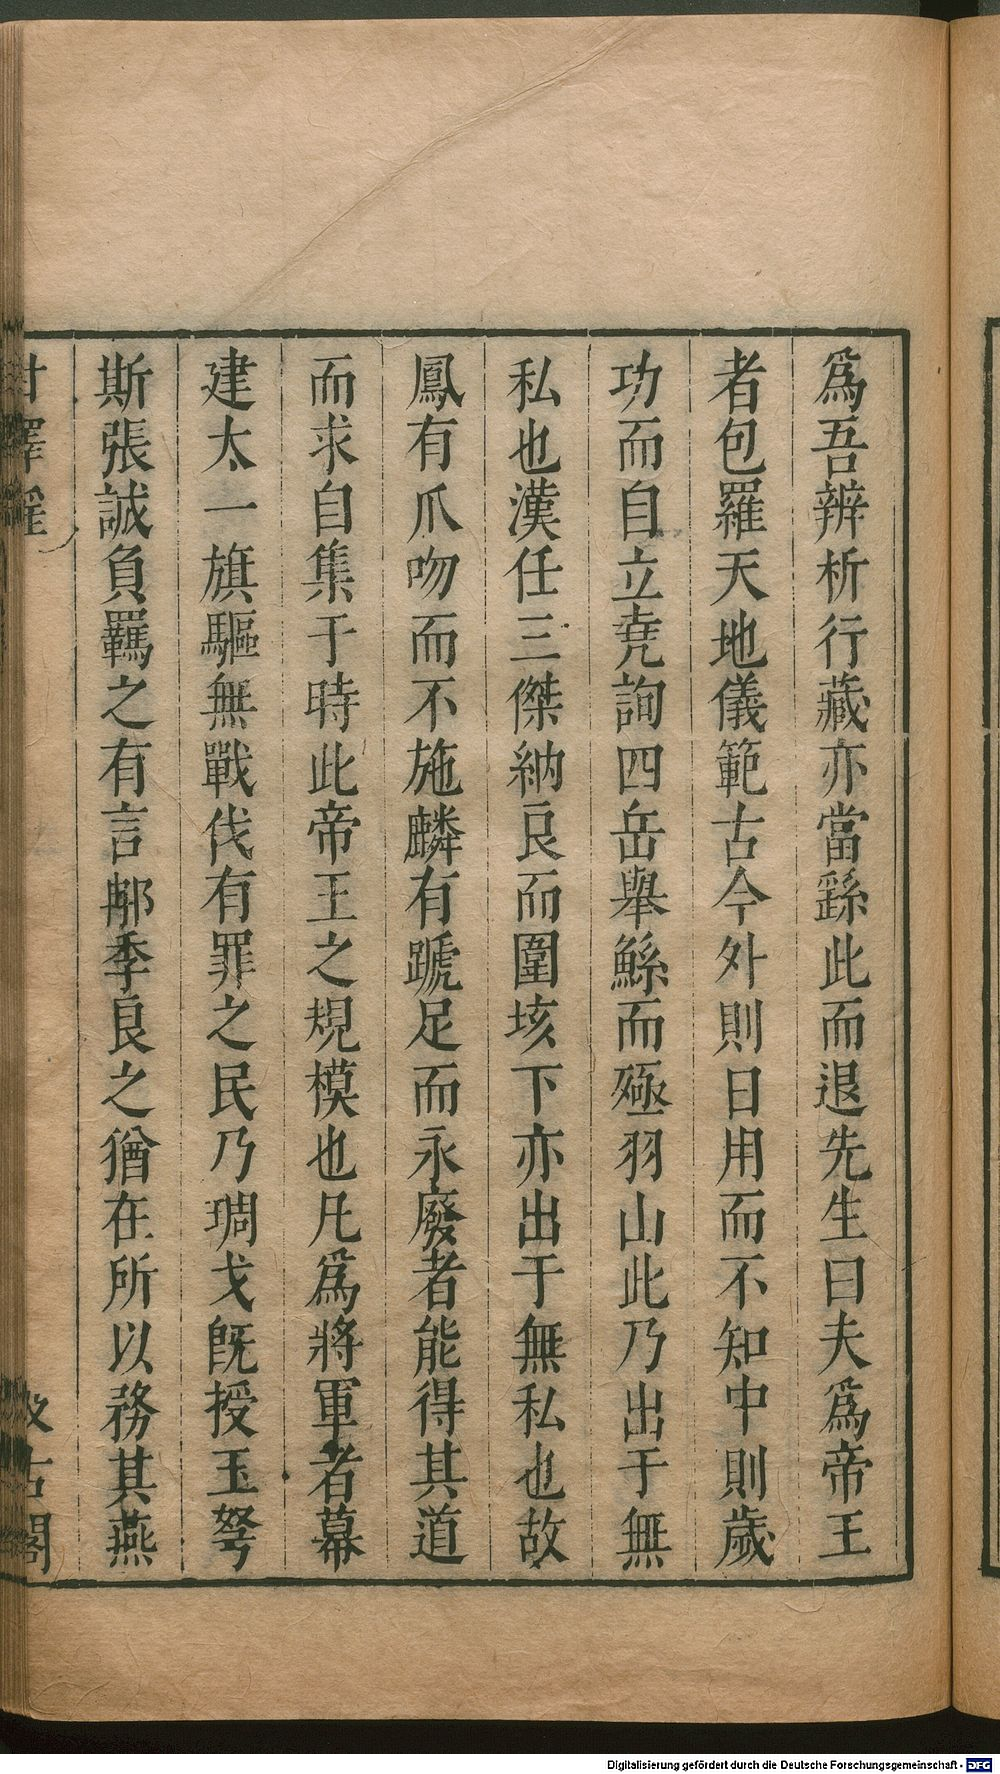 爲吾辨析行藏亦當繇此而退先生曰夫爲帝王
者包羅天地儀範古今外則日用而不知中則歲
功而自立堯詢四岳舉鯀而殛羽山此乃出于無
私也漢任三傑納良而圍垓下亦出于無私也故
鳳有爪吻而不施麟有蹏足而永廢者能得其道
而求自集于時此帝王之規模也凡爲將軍者幕
建太一旗驅無戰伐有罪之民乃琱戈旣授玉弩
斯張誠負羈之有言郲季良之猶在所以務其燕
甘澤謠
汲古閣
Digitalisierung gefördert durch die Deutsche Forschungsgemeinschaft - DFG